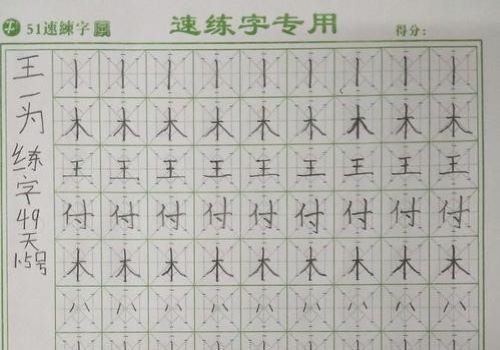 51速練字
速练字专用
得分:
王一为
练字
49
天
1.5号
丨丨丨丨丨丨丨丨丨
木木木木木木木木木
王王王王王王王王王
付付付付付付付付付
木木木木木木木木木
八八八八八八八八八